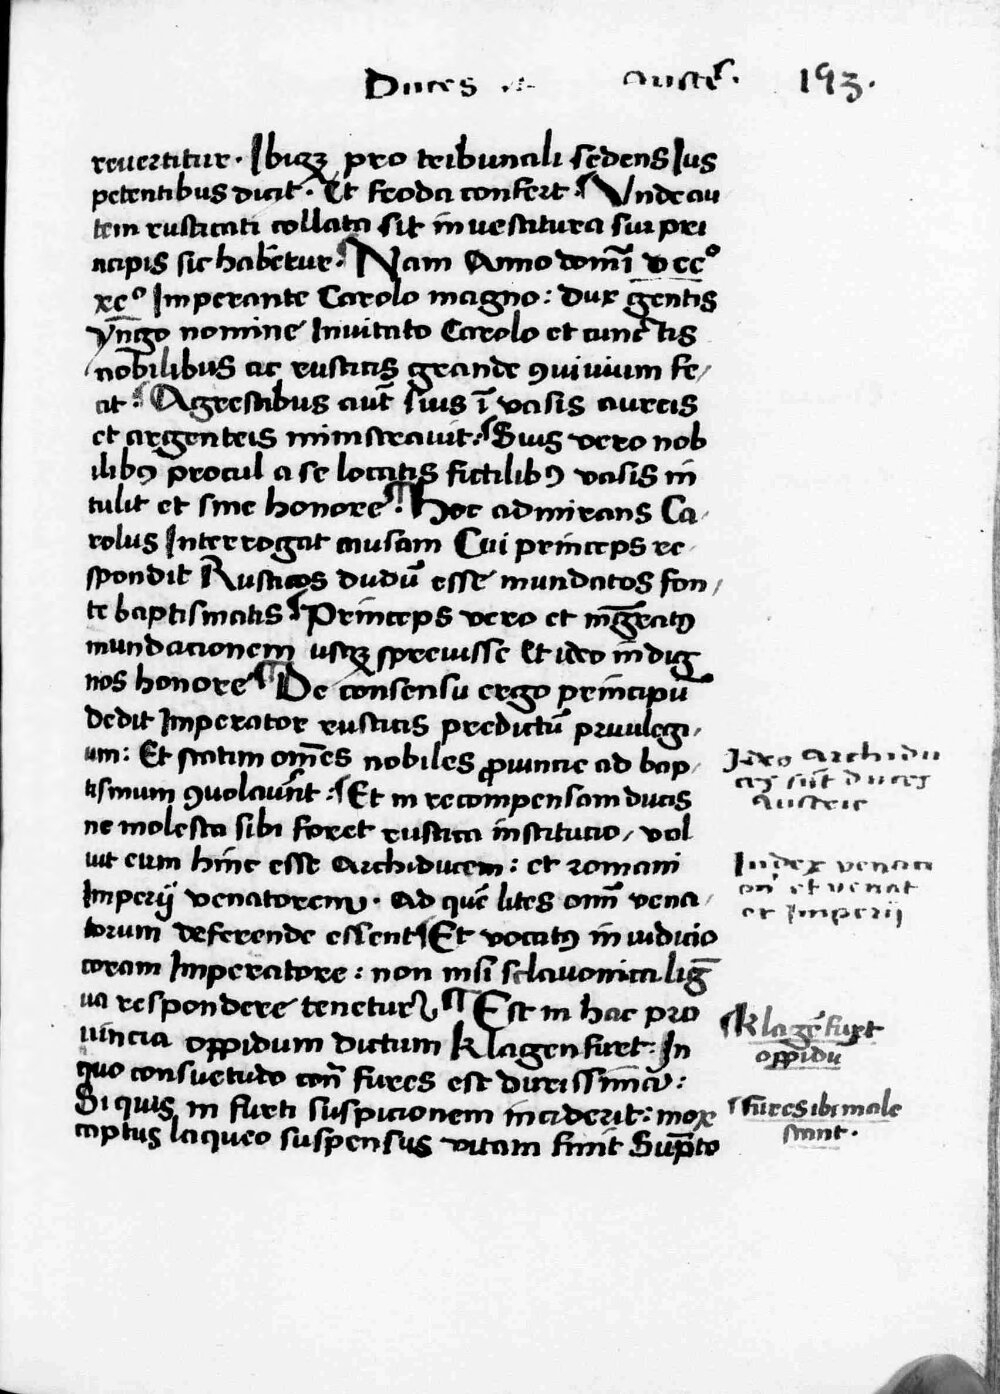 Duces Austrꝭ. 193.
revertitur. Ibiqꝫ pro tribunali sedens Ius
petentibus dicit. Et feoda confert. ¶ Vnde au
tem rusticati collata sit investitura sui pri
ncipis sic habet᷑ur. ¶ Nam Anno dom̄i vccº
xcº Imperante Carolo magno: dux gentis
yn̄go nomine Invitato Carolo et cunctis
nobilibus ac rusticis grande ꝯuivium fe/
cit. ¶ Agrestibus aut̄ suis ī vasis aureis
et argenteis ministravit: ¶ Suis vero nob
ilibꝰ procul a se locatis fictilibꝰ vasis in
tulit et sine honore. ¶ Hoc admirans Ca/
rolus Interrogat causam Cui princeps re/
spondit Rusticos dudū esse mundatos fon/
te baptismatis ¶ Princeps vero et in̄gratꝰ
mundacionem usqꝫ sprevisse Et ideo indig
nos honore ¶ De consensu ergo principū
dedit Imperator rusticis predictū privilegi/
um: Et statim om̄es nobiles ꝓvincie ad bap/
tismum ꝯuolaūnt: ¶ Et in recompensam ducis
ne molesta sibi foret rustica institucio, vol
uit eum hinc esse Archiducem: et romani
Imperij venatorem. ad quē lites om̄ vena/
torum deferende essent ¶ Et vocatꝰ in iudicio
coram Imperatore: non nisi sclavonica lig̅
ua respondere tenetur ¶ Est in hac pro
vincia oppidum dictum Klagenfurt: In
quo consuetudo con̄ fures est durissima:
Si quis in furti suspicionem inciderit: mox
captus laqueo suspensus vitam finit Sup̄to
Ideo Archidu
ces sūt duces
Austrie
Iudex venati
on̄ et venat
or Imperij
¶ Klagēfurt
oppidū
¶ fures ibi male
stant.